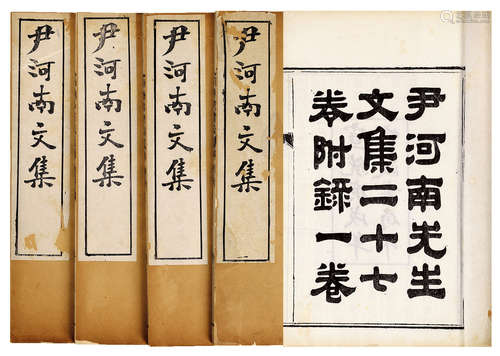 尹河南文集
尹河南文集
尹河南文集
尹河南文集
尹河南先生
文集二十七
卷附錄一卷